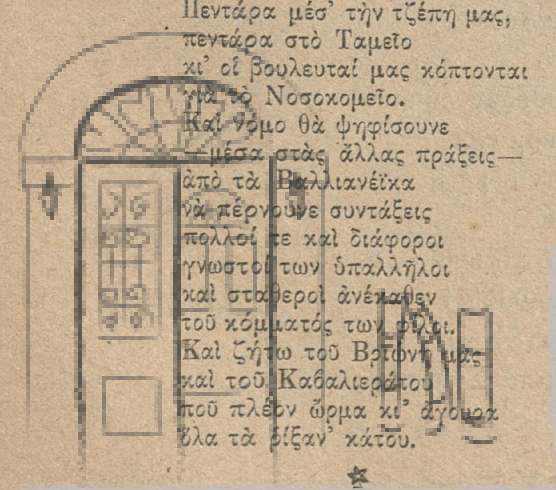 Πεντάρα μέσ' τὴν τζέπη μας,
πεντάρα στὸ Ταμεῖο
κι' οἱ βουλευταί μας κόπτονται
γιὰ τὸ Νοσοκομεῖο.
Καὶ νόμο θὰ ψηφίσουνε
—μέσα στὰς ἄλλας πράξεις—
ἀπὸ τὰ Βαλλιανέϊκα
νὰ πέρνουνε συντάξεις
πολλοί τε καὶ διάφοροι
γνωστοί των ὑπαλλῆλοι
καὶ σταθεροὶ ἀνέκαθεν
τοῦ κόμματός των φίλοι.
Καὶ ζήτω τοῦ Βριώνη μας
καὶ τοῦ Καβαλιεράτου
ποῦ πλέον ὥρμα κι' ἄγουρα
ὅλα τὰ ῥίξαν' κάτου.